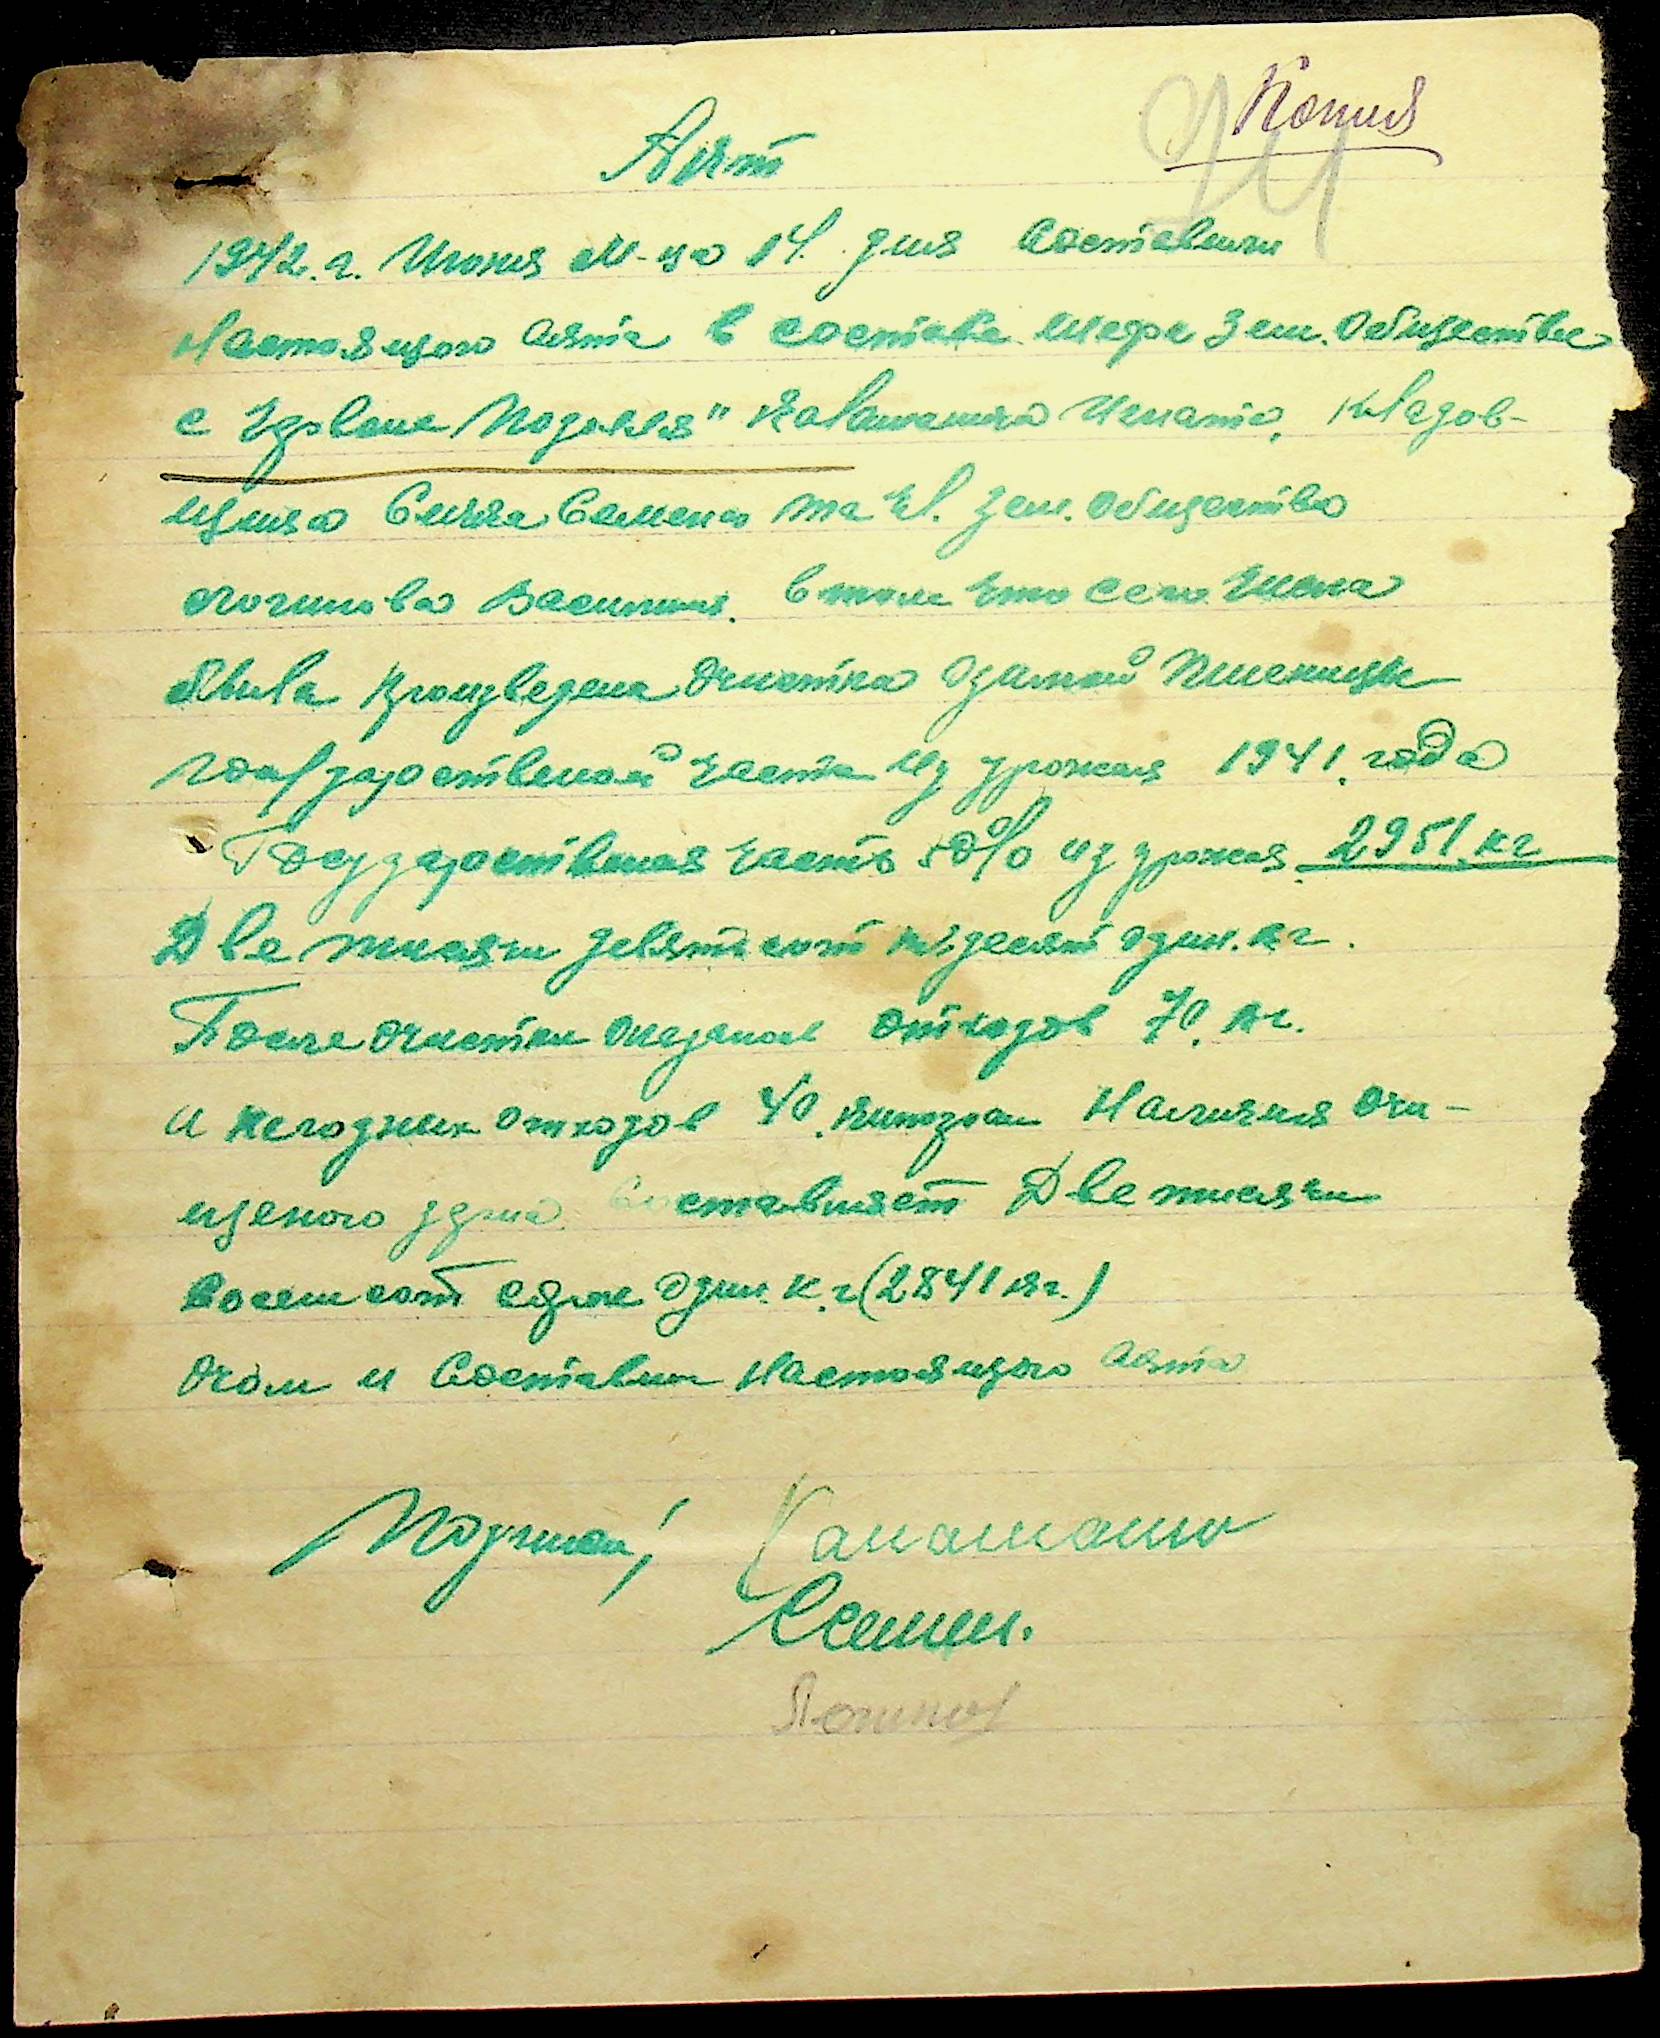 Копия
Акт
1942. г. Июня М-ца 14. дня Составлен
Настоящого акта в составе шефа Зем. Общества
с Червона Подолля" Игната, кладов-
щика Семена та Чл. Зем. общества
Логинова Василия. в том что сего числа
была произведена Очистка Озимой Пшеницы
государственой части Из урожая 1941. года
Государственая часть 50% из урожая 2951. кг
Две тисячи девятьсот пядесят один. кг.
После очистки оказалось отходов 70. кг.
и негодних отходов 40. килограм Наличия Очи-
щеного зерна составляет Две тисячи
восемсот сорок один. к.г (2841 кг.)
Очом и Составлен Настоящого акта
Подписи;
Логинов